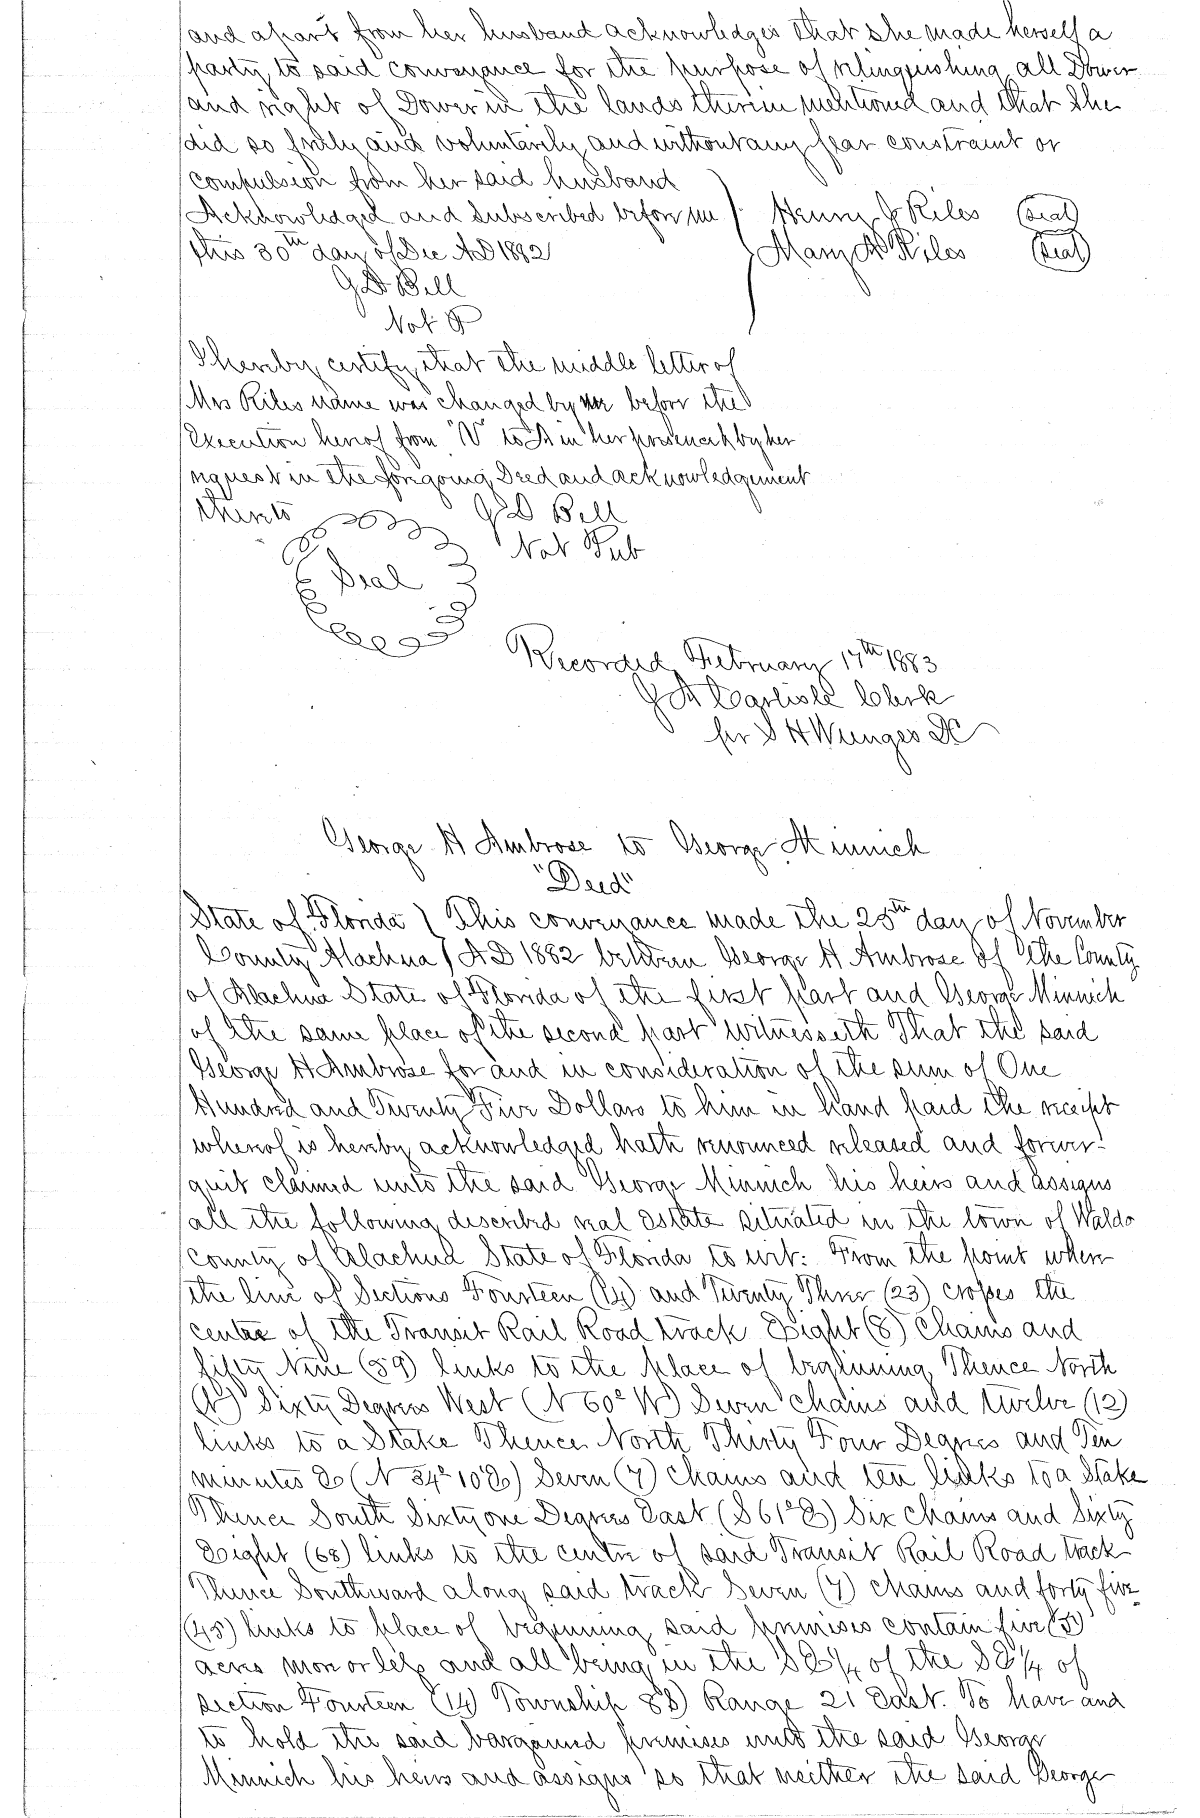 and apart from her husband acknowledges that she made herself a
party to said conveyance for the purpose of relinquishing all Dower
and right of Dower in the lands therein mentioned and that she
did so freely and voluntarily and without any fear constraint or
compulsion from her said husband
Acknowledged and Subscribed before me } Henry J Riles (Seal)
this 30th day of Dec AD 1882 } Mary A Riles (Seal)
J D Bell
Not P
I hereby certify that the middle letter of
Mrs Riles name was changed by me before the
Execution hereof from "N" to A in her presence & by her
request in the foregoing Deed and acknowledgement
thereto J D Bell
Not Pub
Seal
Recorded February 17th 1883
J A Carlisle Clerk
per S H Wienges DC
George H Ambrose to George Minnich
"Deed"
State of Florida } This conveyance made the 25th day of November
County Alachua } AD 1882 between George H Ambrose of the County
of Alachua State of Florida of the first part and George Minnich
of the same place of the second part witnesseth That the said
George H Ambrose for and in consideration of the sum of One
Hundred and Twenty Five Dollars to him in hand paid the receipt
whereof is hereby acknowledged hath renounced released and forever-
quit claimed unto the said George Minnich his heirs and assigns
all the following described real estate situated in the town of Waldo
County of Alachua State of Florida to wit: From the point where
the line of Sections Fourteen (14) and Twenty Three (23) crosses the
centre of the Transit Rail Road track Eight (8) Chains and
fifty Nine (59) links to the place of beginning Thence North
(N) Sixty Degrees West (N 60° W) Seven chains and twelve (12)
links to a Stake Thence North Thirty Four Degrees and Ten
minutes E (N 34° 10' E) Seven (7) chains and ten links to a Stake
Thence South Sixty one Degrees East (S 61° E) Six chains and Sixty
Eight (68) links to the centre of said Transit Rail Road track
Thence Southward along said track Seven (7) chains and forty five
(45) links to place of beginning said premises contain five (5)
acres more or less and all being in the SE 1/4 of the SE 1/4 of
section Fourteen (14) Township 8 S) Range 21 East. To have and
to hold the said bargained premises unto the said George
Minnich his heirs and assigns so that neither the said George